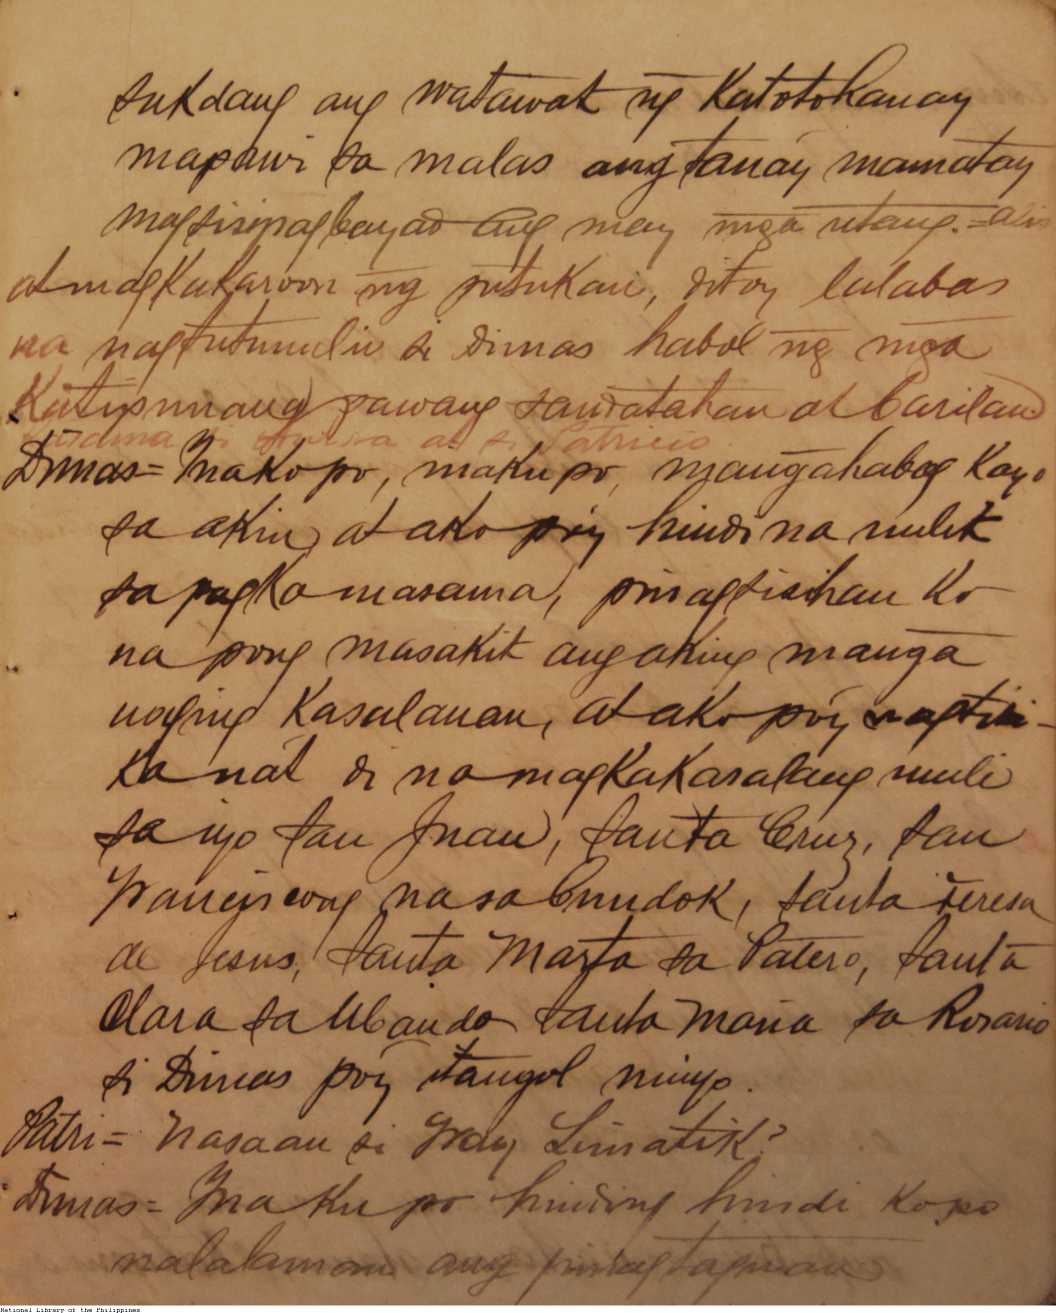 sukdang ang watawat ng Katotohanay
mapawi sa malas ang tanáy mamatay
magsisipagbayad ang may mga utang.=
at magkakaroon ng putukan, ditoy lalabas
na nagtutumulin si Dimas habol ng mga
Katipunang pawang sandatahan at barilan)
si Patricio
Dimas= Inakopo, makupo, mangahabag Kayo
sa akin, at ako póy hindi na mulit
sa pagka masama, pinagsisihan Ko
na pong masakit ang aking manga
naging Kasalanan, at ako póy nagtiti-
ka nat di na magkakasalang muli
sa iyo San Juan, Santa Cruz, San
Franciscong na sa Bundok, santa Teresa
de Jesus, Santa Marta sa Patero, Santa
Clara sa Ubando Santa Maria sa Rosario
si Dimas póy itangol ninyo.
Patri= Nasaan si Fray Limatik?
Dimas= Ina Ku po hinding hindi Ko po
nalalaman ang pinagtaguan